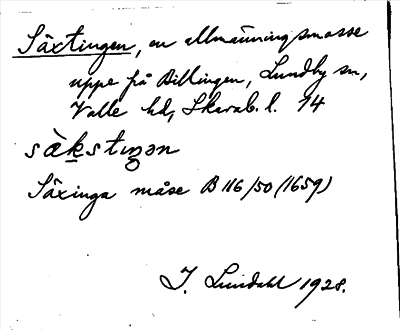 Säxtingen, en allmänningsmosse
uppe på Billingen, Lundby sn,
Valle hd, Skarab. l. 14
sä̀kstiŋən
Säxinga måse B 116/50 (1659)
I. Lundahl 1928.